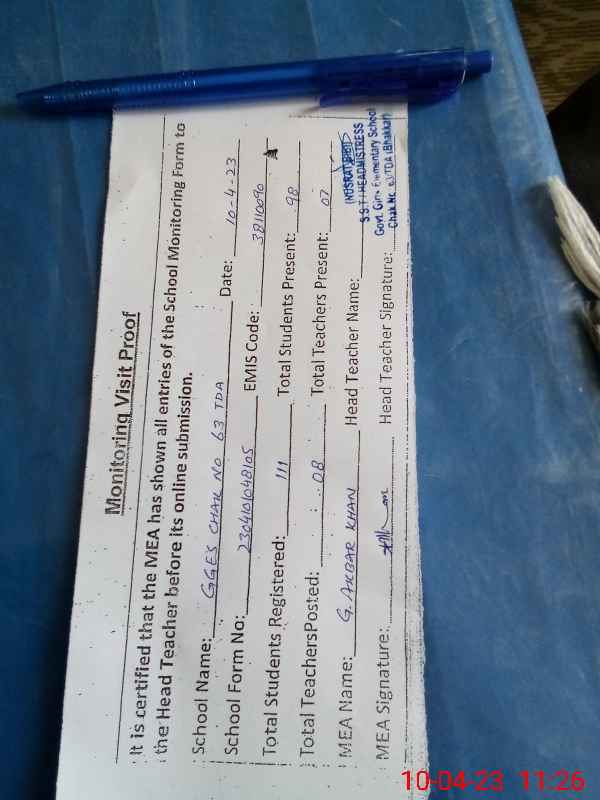 Monitoring Visit Proof
It is certified that the MEA has shown all entries of the School Monitoring Form to
the Head Teacher before its online submission.
School Name: GGES CHAK NO 63 TDA Date: 10-4-23
School Form No: 230410104B105 EMIS Code: 38110090
Total Students Registered: 111 Total Students Present: 98
Total TeachersPosted: 08 Total Teachers Present: 07
MEA Name: G. AKBAR KHAN Head Teacher Name:
MEA Signature: Head Teacher Signature:
(NUSRAT BIBI)
S.S.T / HEADMISTRESS
Govt. Girls Elementary School
Chak No. 63/TDA (Bhakkar)
10-04-23 11:26